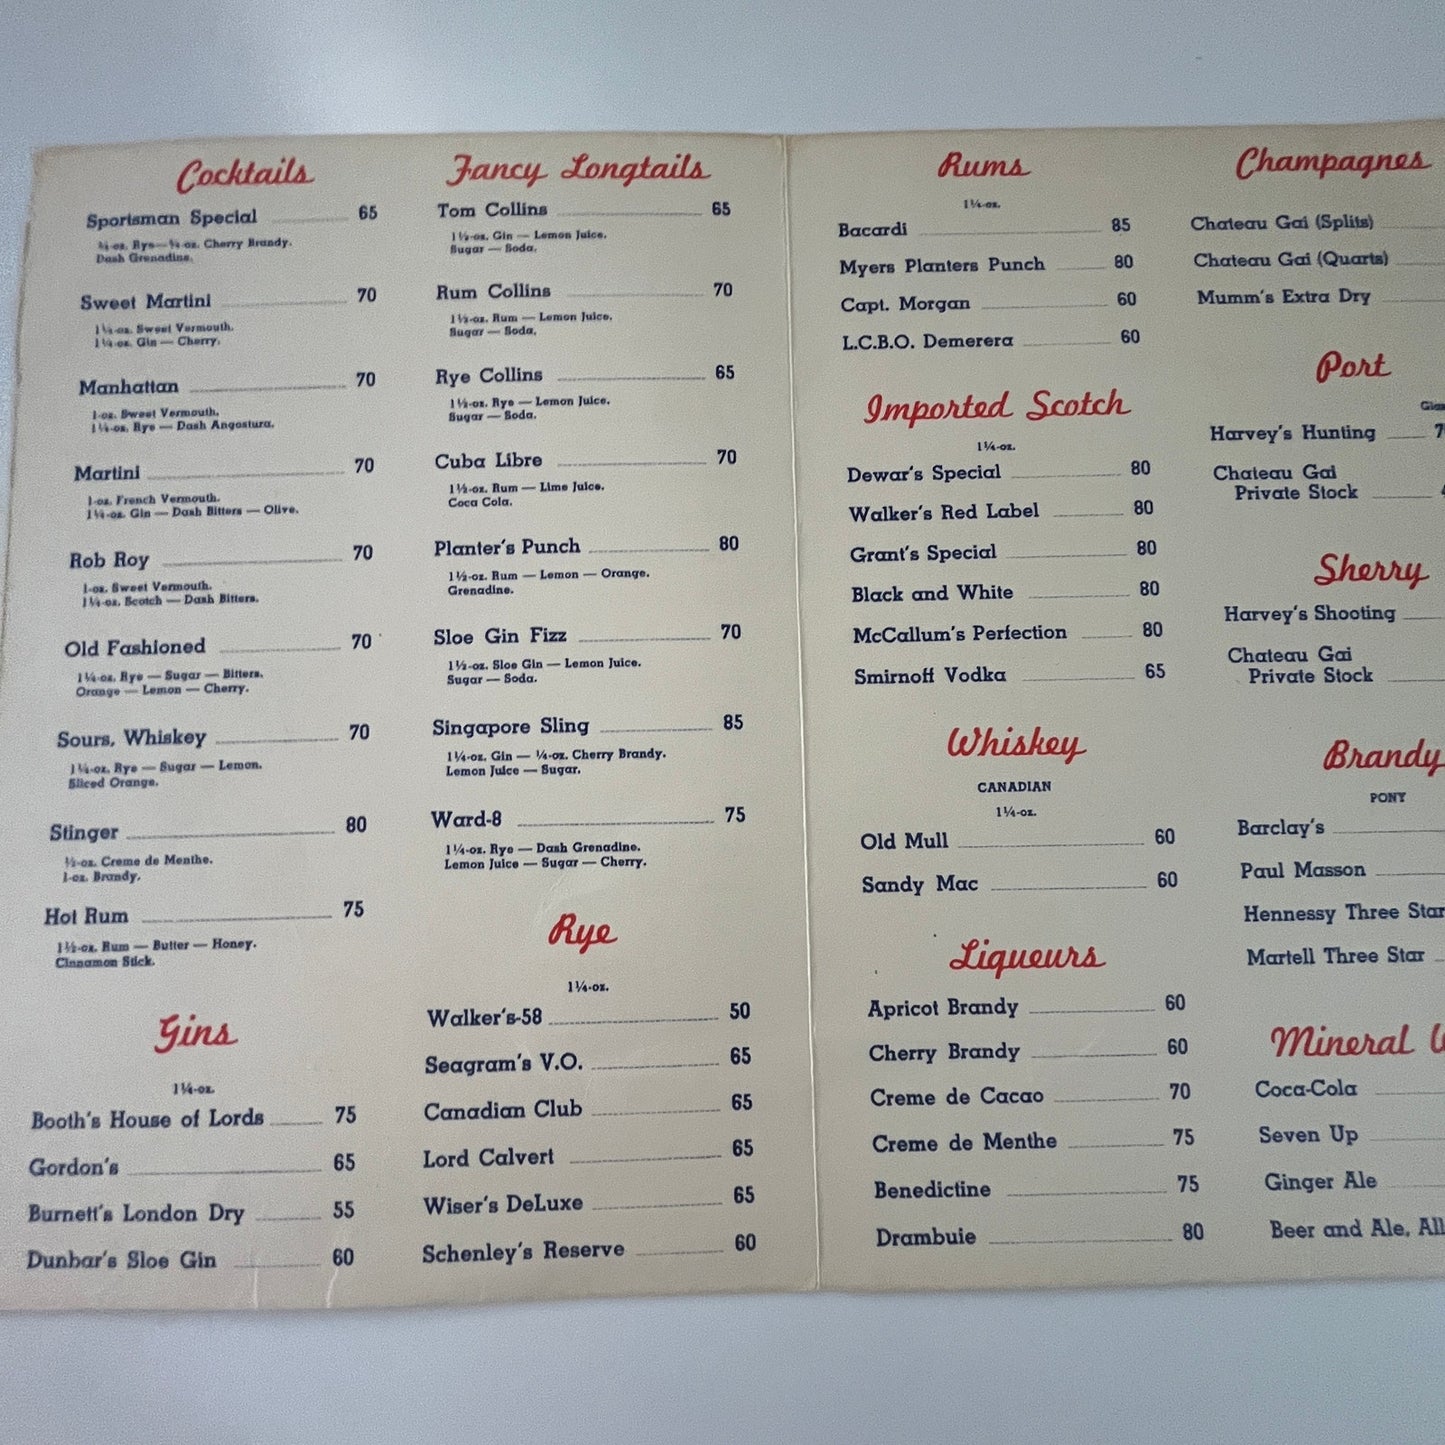 Cocktails
Sportsman Special 65
¾-oz. Rye — ¾-oz. Cherry Brandy.
Dash Grenadine.
Sweet Martini 70
1¼-oz. Sweet Vermouth.
1¼-oz. Gin — Cherry.
Manhattan 70
1-oz. Sweet Vermouth.
1¼-oz. Rye — Dash Angostura.
Martini 70
1-oz. French Vermouth.
1¼-oz. Gin — Dash Bitters — Olive.
Rob Roy 70
1-oz. Sweet Vermouth.
1¼-oz. Scotch — Dash Bitters.
Old Fashioned 70
1¼-oz. Rye — Sugar — Bitters.
Orange — Lemon — Cherry.
Sours, Whiskey 70
1¼-oz. Rye — Sugar — Lemon.
Sliced Orange.
Stinger 80
½-oz. Creme de Menthe.
1-oz. Brandy.
Hot Rum 75
1½-oz. Rum — Butter — Honey.
Cinnamon Stick.
Gins
1¼-oz.
Booth's House of Lords 75
Gordon's 65
Burnett's London Dry 55
Dunbar's Sloe Gin 60
Fancy Longtails
Tom Collins 65
1½-oz. Gin — Lemon Juice.
Sugar — Soda.
Rum Collins 70
1½-oz. Rum — Lemon Juice.
Sugar — Soda.
Rye Collins 65
1½-oz. Rye — Lemon Juice.
Sugar — Soda.
Cuba Libre 70
1½-oz. Rum — Lime Juice.
Coca Cola.
Planter's Punch 80
1½-oz. Rum — Lemon — Orange.
Grenadine.
Sloe Gin Fizz 70
1½-oz. Sloe Gin — Lemon Juice.
Sugar — Soda.
Singapore Sling 85
1¼-oz. Gin — ¼-oz. Cherry Brandy.
Lemon Juice — Sugar.
Ward-8 75
1¼-oz. Rye — Dash Grenadine.
Lemon Juice — Sugar — Cherry.
Rye
1¼-oz.
Walker's-58 50
Seagram's V.O. 65
Canadian Club 65
Lord Calvert 65
Wiser's DeLuxe 65
Schenley's Reserve 60
Rums
1¼-oz.
Bacardi 85
Myers Planters Punch 80
Capt. Morgan 60
L.C.B.O. Demerera 60
Imported Scotch
1¼-oz.
Dewar's Special 80
Walker's Red Label 80
Grant's Special 80
Black and White 80
McCallum's Perfection 80
Smirnoff Vodka 65
Whiskey
CANADIAN
1¼-oz.
Old Mull 60
Sandy Mac 60
Liqueurs
Apricot Brandy 60
Cherry Brandy 60
Creme de Cacao 70
Creme de Menthe 75
Benedictine 75
Drambuie 80
Champagnes
Chateau Gai (Splits)
Chateau Gai (Quarts)
Mumm's Extra Dry
Port
Harvey's Hunting
Chateau Gai
Private Stock
Sherry
Harvey's Shooting
Chateau Gai
Private Stock
Brandy
PONY
Barclay's
Paul Masson
Hennessy Three Star
Martell Three Star
Mineral
Coca-Cola
Seven Up
Ginger Ale
Beer and Ale, All